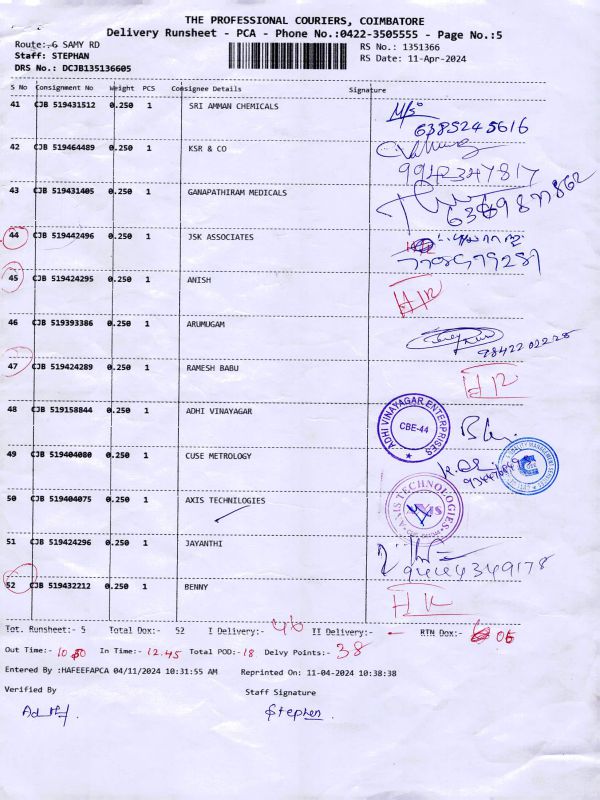 THE PROFESSIONAL COURIERS, COIMBATORE
Delivery Runsheet - PCA - Phone No.:0422-3505555 - Page No.:5
Route:-G SAMY RD
RS No.: 1351366
Staff: STEPHAN
RS Date: 11-Apr-2024
DRS No.: DCJB135136605
S No Consignment No Weight PCS Consignee Details Signature
41 CJB 519431512 0.250 1 SRI AMMAN CHEMICALS M/s
6385245616
42 CJB 519464489 0.250 1 KSR & CO
9942347817
43 CJB 519431405 0.250 1 GANAPATHIRAM MEDICALS
44 CJB 519442496 0.250 1 JSK ASSOCIATES
45 CJB 519424295 0.250 1 ANISH
46 CJB 519393386 0.250 1 ARUMUGAM
9842202228
47 CJB 519424289 0.250 1 RAMESH BABU
48 CJB 519158844 0.250 1 ADHI VINAYAGAR
ADHI VINAYAGAR ENTERPRISES
CBE-44
49 CJB 519404080 0.250 1 CUSE METROLOGY
50 CJB 519404075 0.250 1 AXIS TECHNILOGIES
AXIS TECHNOLOGIES
AXIS
51 CJB 519424296 0.250 1 JAYANTHI
9444349178
52 CJB 519432212 0.250 1 BENNY
Tot. Runsheet:- 5 Total Dox:- 52 I Delivery:- 46 II Delivery:- - RTN Dox:- 06
Out Time:- 10 50 In Time:- 12.45 Total POD:-18 Delvy Points:- 38
Entered By :HAFEEFAPCA 04/11/2024 10:31:55 AM Reprinted On: 11-04-2024 10:38:38
Verified By Staff Signature
Stephen